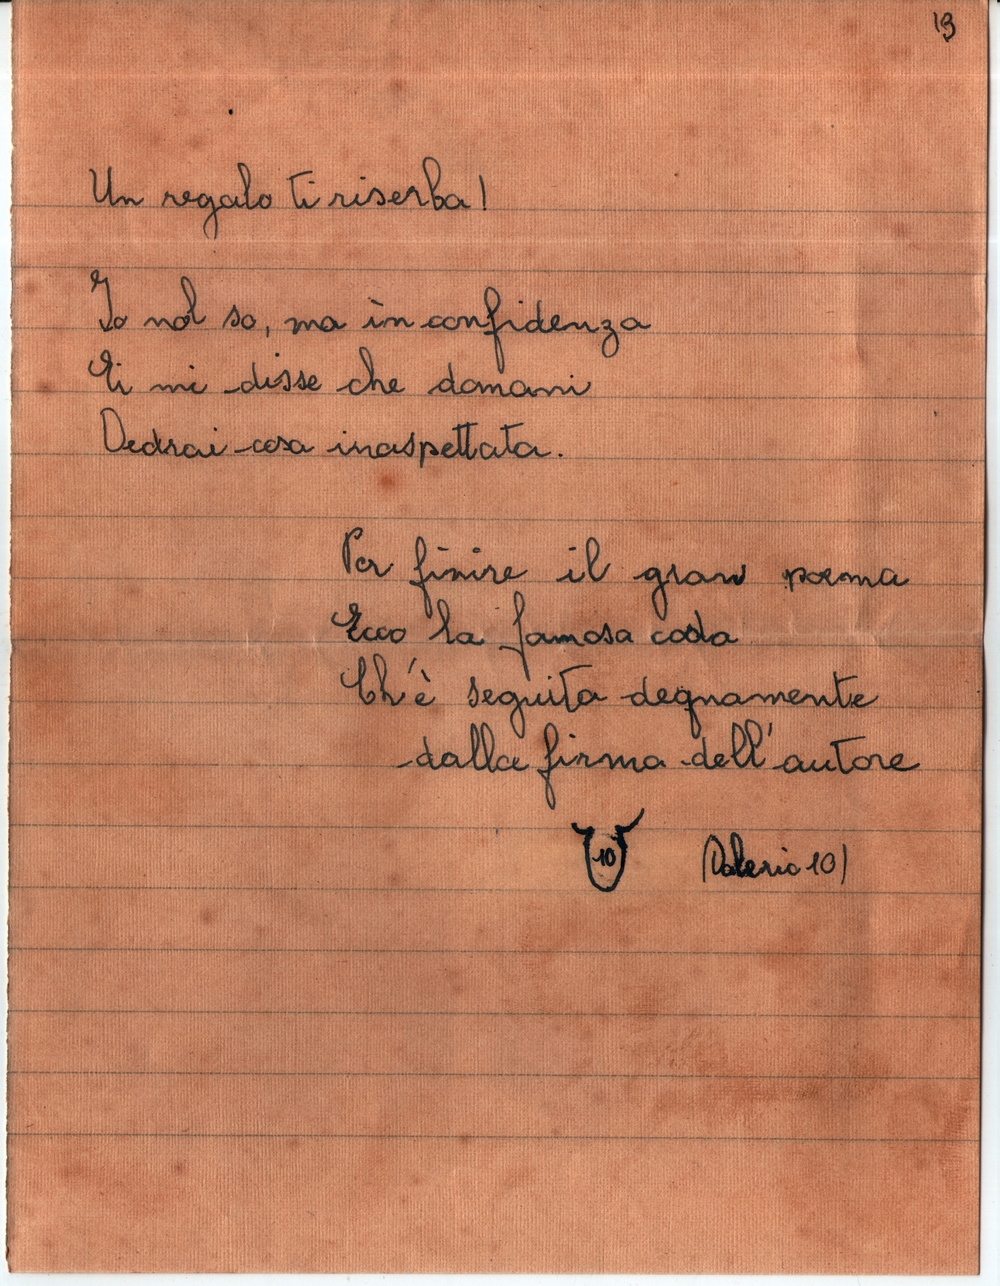 13
Un regalo ti riserba!
Io nol so, ma in confidenza
Ei mi disse che domani
Vedrai cosa inaspettata.
Per finire il gran poema
Ecco la famosa coda
Ch'è seguita degnamente
dalla firma dell'autore
10 (Valerio 10)